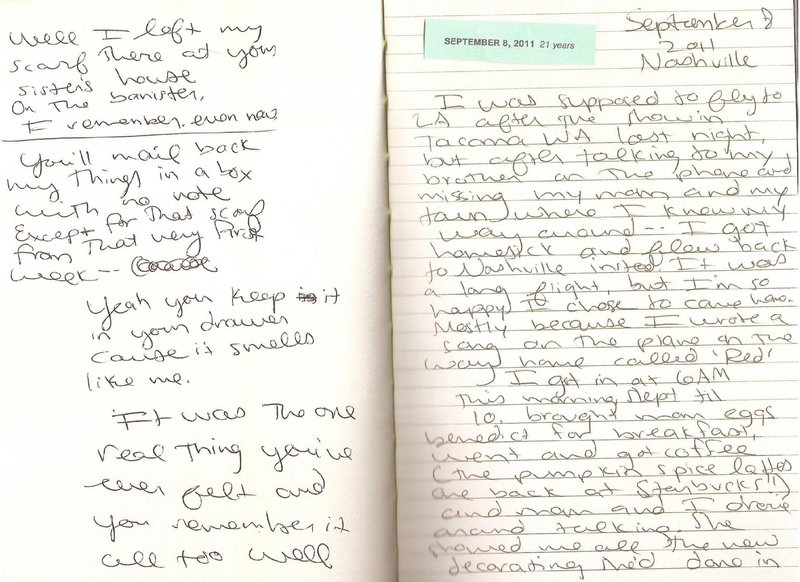 Well I left my
scarf there at your
sisters house
On the banister,
I remember. even now
You'll mail back
my things in a box
with no note
Except for that scarf
from that very first
week--
Yeah you keep it
in your drawer
Cause it smells
like me.
It was the one
real thing you've
ever felt and
you remember it
all too well
SEPTEMBER 8, 2011 21 years
September 8
2011
Nashville
I was supposed to fly to
LA after the show in
Tacoma WA last night,
but after talking to my
brother on the phone and
missing my mom and my
town where I know my
way around-- I got
homesick and flew back
to Nashville insted. It was
a long flight, but I'm so
happy I chose to come home.
Mostly because I wrote a
song on the plane on the
way home called 'Red'
I got in at 6AM
this morning slept til
10, brought mom eggs
benedict for breakfast,
went and got coffee
(the pumpkin spice lattes
are back at Starbucks!!)
and mom and I drove
around talking. She
showed me all the new
decorating she'd done in